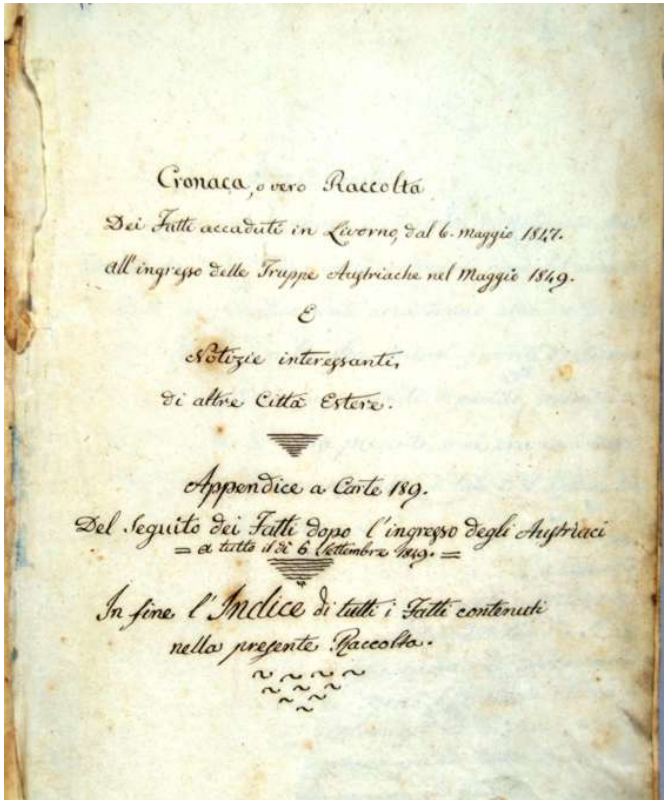 Cronaca, o vero Raccolta
Dei Fatti accaduti in Livorno, dal 6. Maggio 1847.
all'ingresso delle Truppe Austriache nel Maggio 1849.
E
Notizie interessanti,
di altre Città Estere.
Appendice a Carte 189.
Del Seguito dei Fatti dopo l'ingresso degli Austriaci
= a tutto il dì 6 Settembre 1849. =
In fine l'Indice di tutti i Fatti contenuti
nella presente Raccolta.